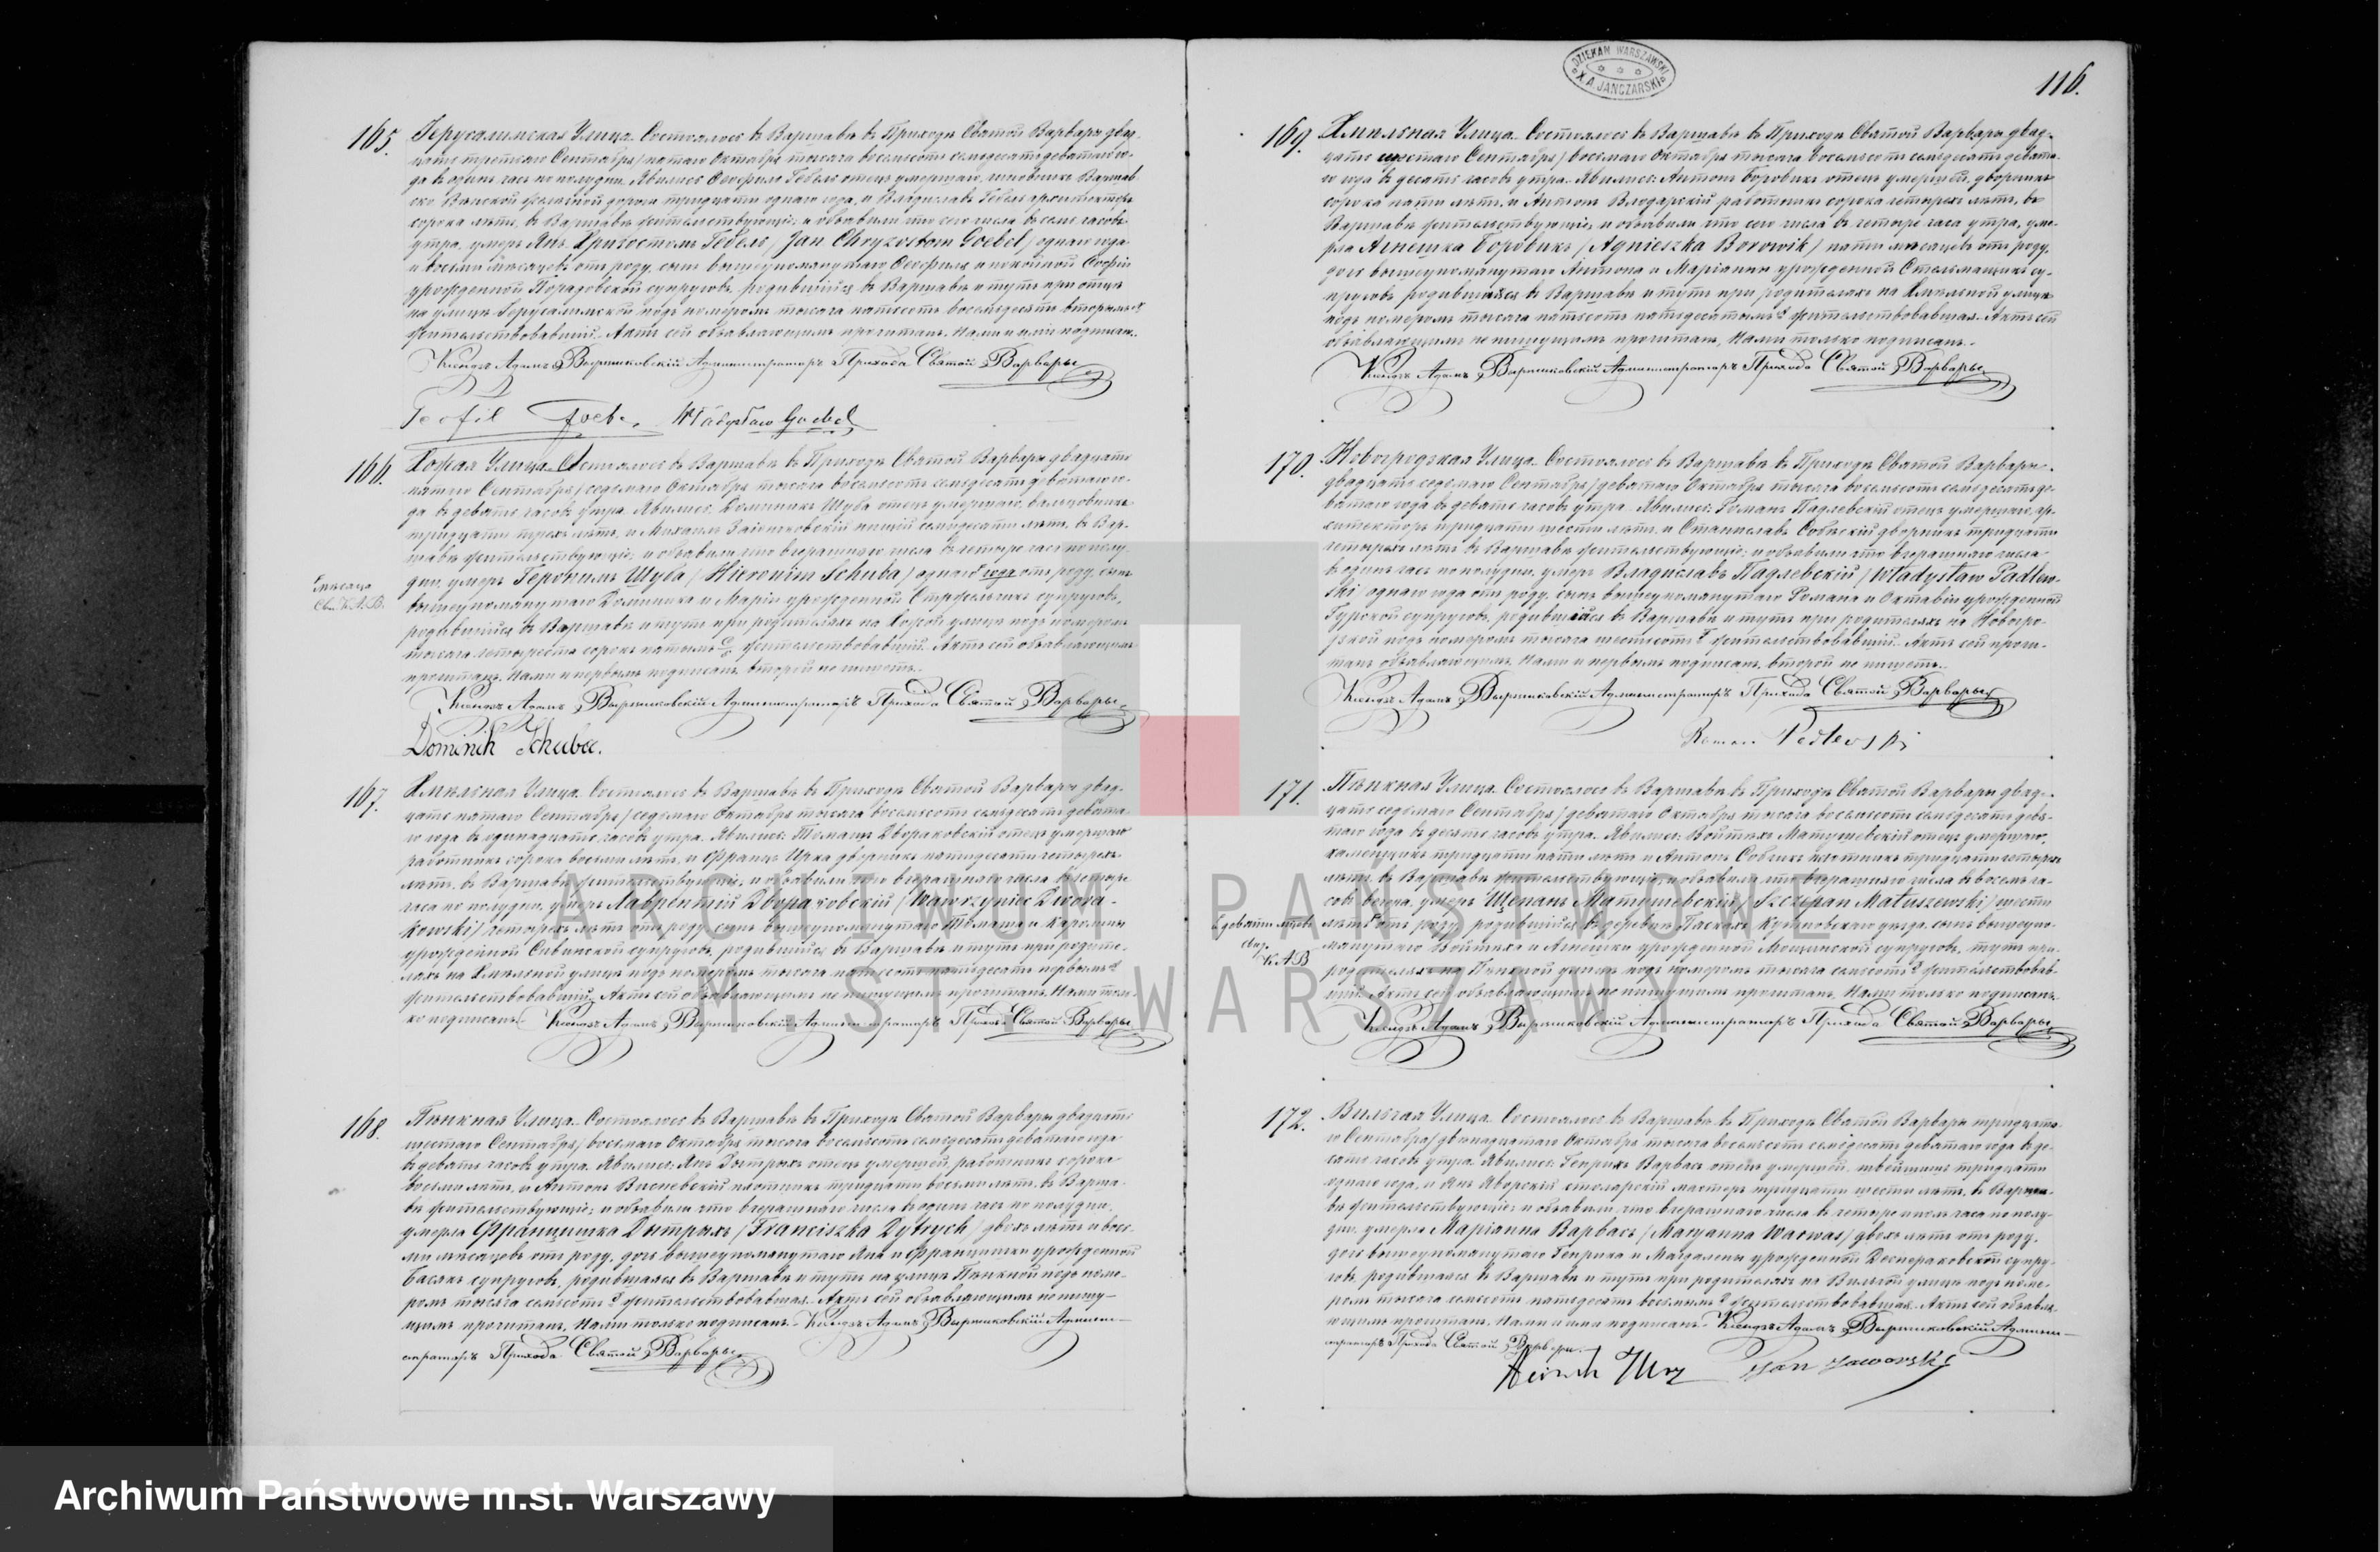 DZIEKAN WARSZAWSKI
X. A. JANCZARSKI
116.
165. Іерусалимская Улица. Состоялось въ Варшавѣ въ Приходѣ Святой Варвары двад-
цать третьяго Сентября/пятаго Октября тысяча восемьсотъ семьдесятъ девятаго го-
да въ одинъ часъ по полудни. Явились Ѳеофилъ Гебель отецъ умершаго, чиновникъ Варшав-
ско Вѣнской желѣзной дороги тридцати одного года, и Владиславъ Гебель архитекторъ
сорока лѣтъ, въ Варшавѣ жительствующіе, и объявили что сего числа въ семь часовъ
утра, умеръ Янъ Хризостомъ Гебель /Jan Chryzostom Goebel/ одного года
и восьми мѣсяцевъ отъ роду, сынъ вышеупомянутаго Ѳеофиля и покойной Софіи
урожденной супруговъ, родившійся въ Варшавѣ и тутъ при отцѣ
на улицѣ Іерусалимской подъ номеромъ тысяча пятьсотъ восемьдесятъ вторымъ
жительствовавшій. Актъ сей объявляющимъ прочитанъ, Нами и ими подписанъ.
Ксендзъ Адамъ Администраторъ Прихода Святой Варвары
Teofil Goebel Władysław Goebel
166. Хожая Улица. Состоялось въ Варшавѣ въ Приходѣ Святой Варвары двадцать
пятаго Сентября/седьмаго Октября тысяча восемьсотъ семьдесятъ девятаго го-
да въ девять часовъ утра. Явились: Доминикъ Шуба отецъ умершаго,
тридцати трехъ лѣтъ, и Михаилъ семидесяти лѣтъ, въ Вар-
шавѣ жительствующіе; и объявили что вчерашняго числа въ четыре часа по полу-
дни, умеръ Геронимъ Шуба /Hieronim Schuba/ одного года отъ роду, сынъ
вышеупомянутаго Доминика и Маріи урожденной супруговъ,
родившійся въ Варшавѣ и тутъ при родителяхъ на Хожой улицѣ подъ номеромъ
тысяча четыреста сорокъ пятымъ жительствовавшій. Актъ сей объявляющимъ
прочитанъ, Нами и первымъ подписанъ, второй не пишетъ.
мѣсяца
Ксендзъ Адамъ Администраторъ Прихода Святой Варвары
Dominik Schuba.
167. Хмѣльная Улица. Состоялось въ Варшавѣ въ Приходѣ Святой Варвары двад-
цать пятаго Сентября/седьмаго Октября тысяча восемьсотъ семьдесятъ девята-
го года въ одинадцать часовъ утра. Явились: Томашъ Двораковскій отецъ умершаго
работникъ сорока восьми лѣтъ, и Францъ дворникъ пятидесяти четырехъ
лѣтъ, въ Варшавѣ жительствующіе, и объявили что вчерашняго числа въ четыре
часа по полудни, умеръ Лаврентій Двораковскій /Wawrzyniec Dwora-
kowski/ четырехъ лѣтъ отъ роду, сынъ вышеупомянутаго Томаша и Каролины
урожденной супруговъ, родившійся въ Варшавѣ и тутъ при родите-
ляхъ на Хмѣльной улицѣ подъ номеромъ тысяча пятьсотъ пятьдесятъ первымъ
жительствовавшій. Актъ сей объявляющимъ не пишущимъ прочитанъ, Нами толь-
ко подписанъ. Ксендзъ Адамъ Администраторъ Прихода Святой Варвары
168. Пѣнкная Улица. Состоялось въ Варшавѣ въ Приходѣ Святой Варвары двадцать
шестаго Сентября/восьмаго Октября тысяча восемьсотъ семьдесятъ девятаго года
въ девять часовъ утра. Явились: Янъ Дытрыхъ отецъ умершей, работникъ сорока
восьми лѣтъ, и Антонъ плотникъ тридцати восьми лѣтъ, въ Варша-
вѣ жительствующіе; и объявили что вчерашняго числа въ одинъ часъ по полудни,
умерла Францишка Дытрыхъ /Franciszka Dytrych/ двухъ лѣтъ и вось-
ми мѣсяцевъ отъ роду, дочь вышеупомянутаго Яна и Францишки урожденной
супруговъ, родившаяся въ Варшавѣ и тутъ на улицѣ Пѣнкной подъ номе-
ромъ тысяча семьсотъ жительствовавшая. Актъ сей объявляющимъ не пишу-
щимъ прочитанъ, Нами только подписанъ. Ксендзъ Адамъ Админи-
страторъ Прихода Святой Варвары
169. Хмѣльная Улица. Состоялось въ Варшавѣ въ Приходѣ Святой Варвары двад-
цать шестаго Сентября/восьмаго Октября тысяча восемьсотъ семьдесятъ девята-
го года въ десять часовъ утра. Явились: Антонъ Боровикъ отецъ умершей, дворникъ
сорока пяти лѣтъ, и Антонъ Влодарскій работникъ сорока четырехъ лѣтъ, въ
Варшавѣ жительствующіе, и объявили что сего числа въ четыре часа утра, уме-
рла Агнешка Боровикъ /Agnieszka Borowik/ пяти мѣсяцевъ отъ роду,
дочь вышеупомянутаго Антона и Маріанны урожденной су-
пруговъ, родившаяся въ Варшавѣ и тутъ при родителяхъ на Хмѣльной улицѣ
подъ номеромъ тысяча пятьсотъ пятьдесятымъ жительствовавшая. Актъ сей
объявляющимъ не пишущимъ прочитанъ, Нами только подписанъ.
Ксендзъ Адамъ Администраторъ Прихода Святой Варвары
170. Новогродзкая Улица. Состоялось въ Варшавѣ въ Приходѣ Святой Варвары
двадцать седьмаго Сентября/девятаго Октября тысяча восемьсотъ семьдесятъ де-
вятаго года въ девять часовъ утра. Явились: Романъ Падлевскій отецъ умершаго, ар-
хитекторъ тридцати шести лѣтъ, и Станиславъ дворникъ тридцати
четырехъ лѣтъ въ Варшавѣ жительствующіе; и объявили что вчерашняго числа
въ одинъ часъ по полудни, умеръ Владиславъ Падлевскій /Władysław Padlew-
ski/ одного года отъ роду, сынъ вышеупомянутаго Романа и Октавіи урожденной
Гурской супруговъ, родившійся въ Варшавѣ и тутъ при родителяхъ на Новогро-
дзкой подъ номеромъ тысяча шестьсотъ жительствовавшій. Актъ сей прочи-
танъ объявляющимъ, Нами и первымъ подписанъ, второй не пишетъ.
Ксендзъ Адамъ Администраторъ Прихода Святой Варвары
Roman Padlewski
171. Пѣнкная Улица. Состоялось въ Варшавѣ въ Приходѣ Святой Варвары двад-
цать седьмаго Сентября/девятаго Октября тысяча восемьсотъ семьдесятъ девя-
таго года въ десять часовъ утра. Явились: Войтѣхъ Матушевскій отецъ умершаго,
каменщикъ тридцати пяти лѣтъ и Антонъ плотникъ тридцати четырехъ
лѣтъ, въ Варшавѣ жительствующіе, и объявили что вчерашняго числа въ восемь ча-
совъ вечера, умеръ Щепанъ Матушевскій /Szczepan Matuszewski/ шести
лѣтъ отъ роду, родившійся въ деревнѣ уѣзда, сынъ вышеупо-
мянутаго Войтѣха и Агнешки урожденной супруговъ, тутъ при
родителяхъ на Пѣнкной улицѣ подъ номеромъ тысяча семьсотъ жительствовав-
шій. Актъ сей объявляющимъ не пишущимъ прочитанъ, Нами только подписанъ.
К.А.В.
Ксендзъ Адамъ Администраторъ Прихода Святой Варвары
172. Вильчая Улица. Состоялось въ Варшавѣ въ Приходѣ Святой Варвары тридцата-
го Сентября/двѣнадцатаго Октября тысяча восемьсотъ семьдесятъ девятаго года въ де-
сять часовъ утра. Явились: Генрихъ Варвасъ отецъ умершей, тридцати
одного года, и Янъ Яворскій столярскій мастеръ тридцати шести лѣтъ, въ Варша-
вѣ жительствующіе; и объявили, что вчерашняго числа въ четыре часа по полу-
дни, умерла Маріанна Варвасъ /Maryanna Warwas/ двухъ лѣтъ отъ роду,
дочь вышеупомянутаго Генриха и Магдалены урожденной супру-
говъ, родившаяся въ Варшавѣ и тутъ при родителяхъ на Вильчей улицѣ подъ номе-
ромъ тысяча семьсотъ пятьдесятъ восьмымъ жительствовавшая. Актъ сей объявля-
ющимъ прочитанъ, Нами и ими подписанъ. Ксендзъ Адамъ Админи-
страторъ Прихода Святой Варвары
Jan Jaworski
ARCHIWUM PAŃSTWOWE
M. ST. WARSZAWY
Archiwum Państwowe m.st. Warszawy